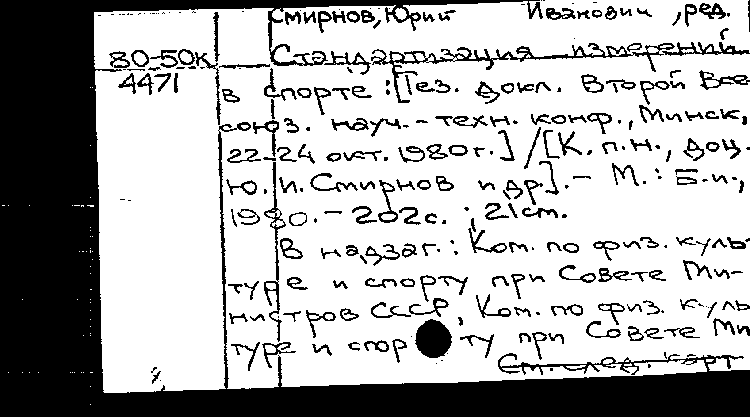 Смирнов, Юрий Иванович, ред.
80-50К Стандартизация измерений
4471
в спорте: [Тез. докл. Второй Все
союз. науч.-техн. конф., Минск,
22-24 окт. 1980г.] / [К.п.н., доц.
Ю.И. Смирнов и др]. - М.: Б.и.,
1980. - 202с. ; 21см.
В надзаг.: Ком. по физ. куль
туре и спорту при Совете Ми-
нистров СССР, Ком. по физ. куль
туре и спорту при Совете Ми
См. след. карт